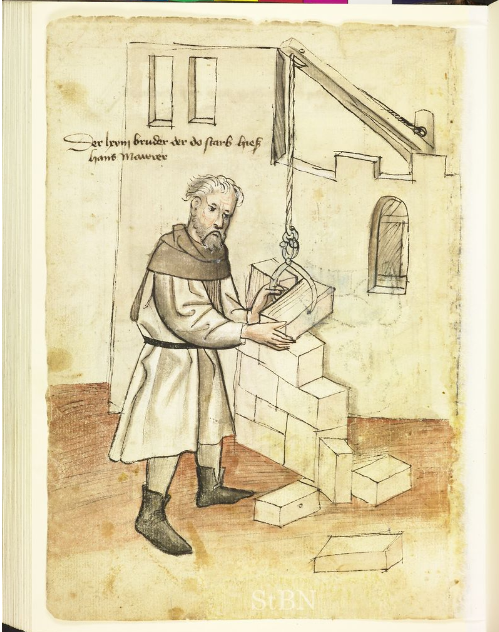 Der lxviij bruder der do starb hieß
hans Mawrer
StBN